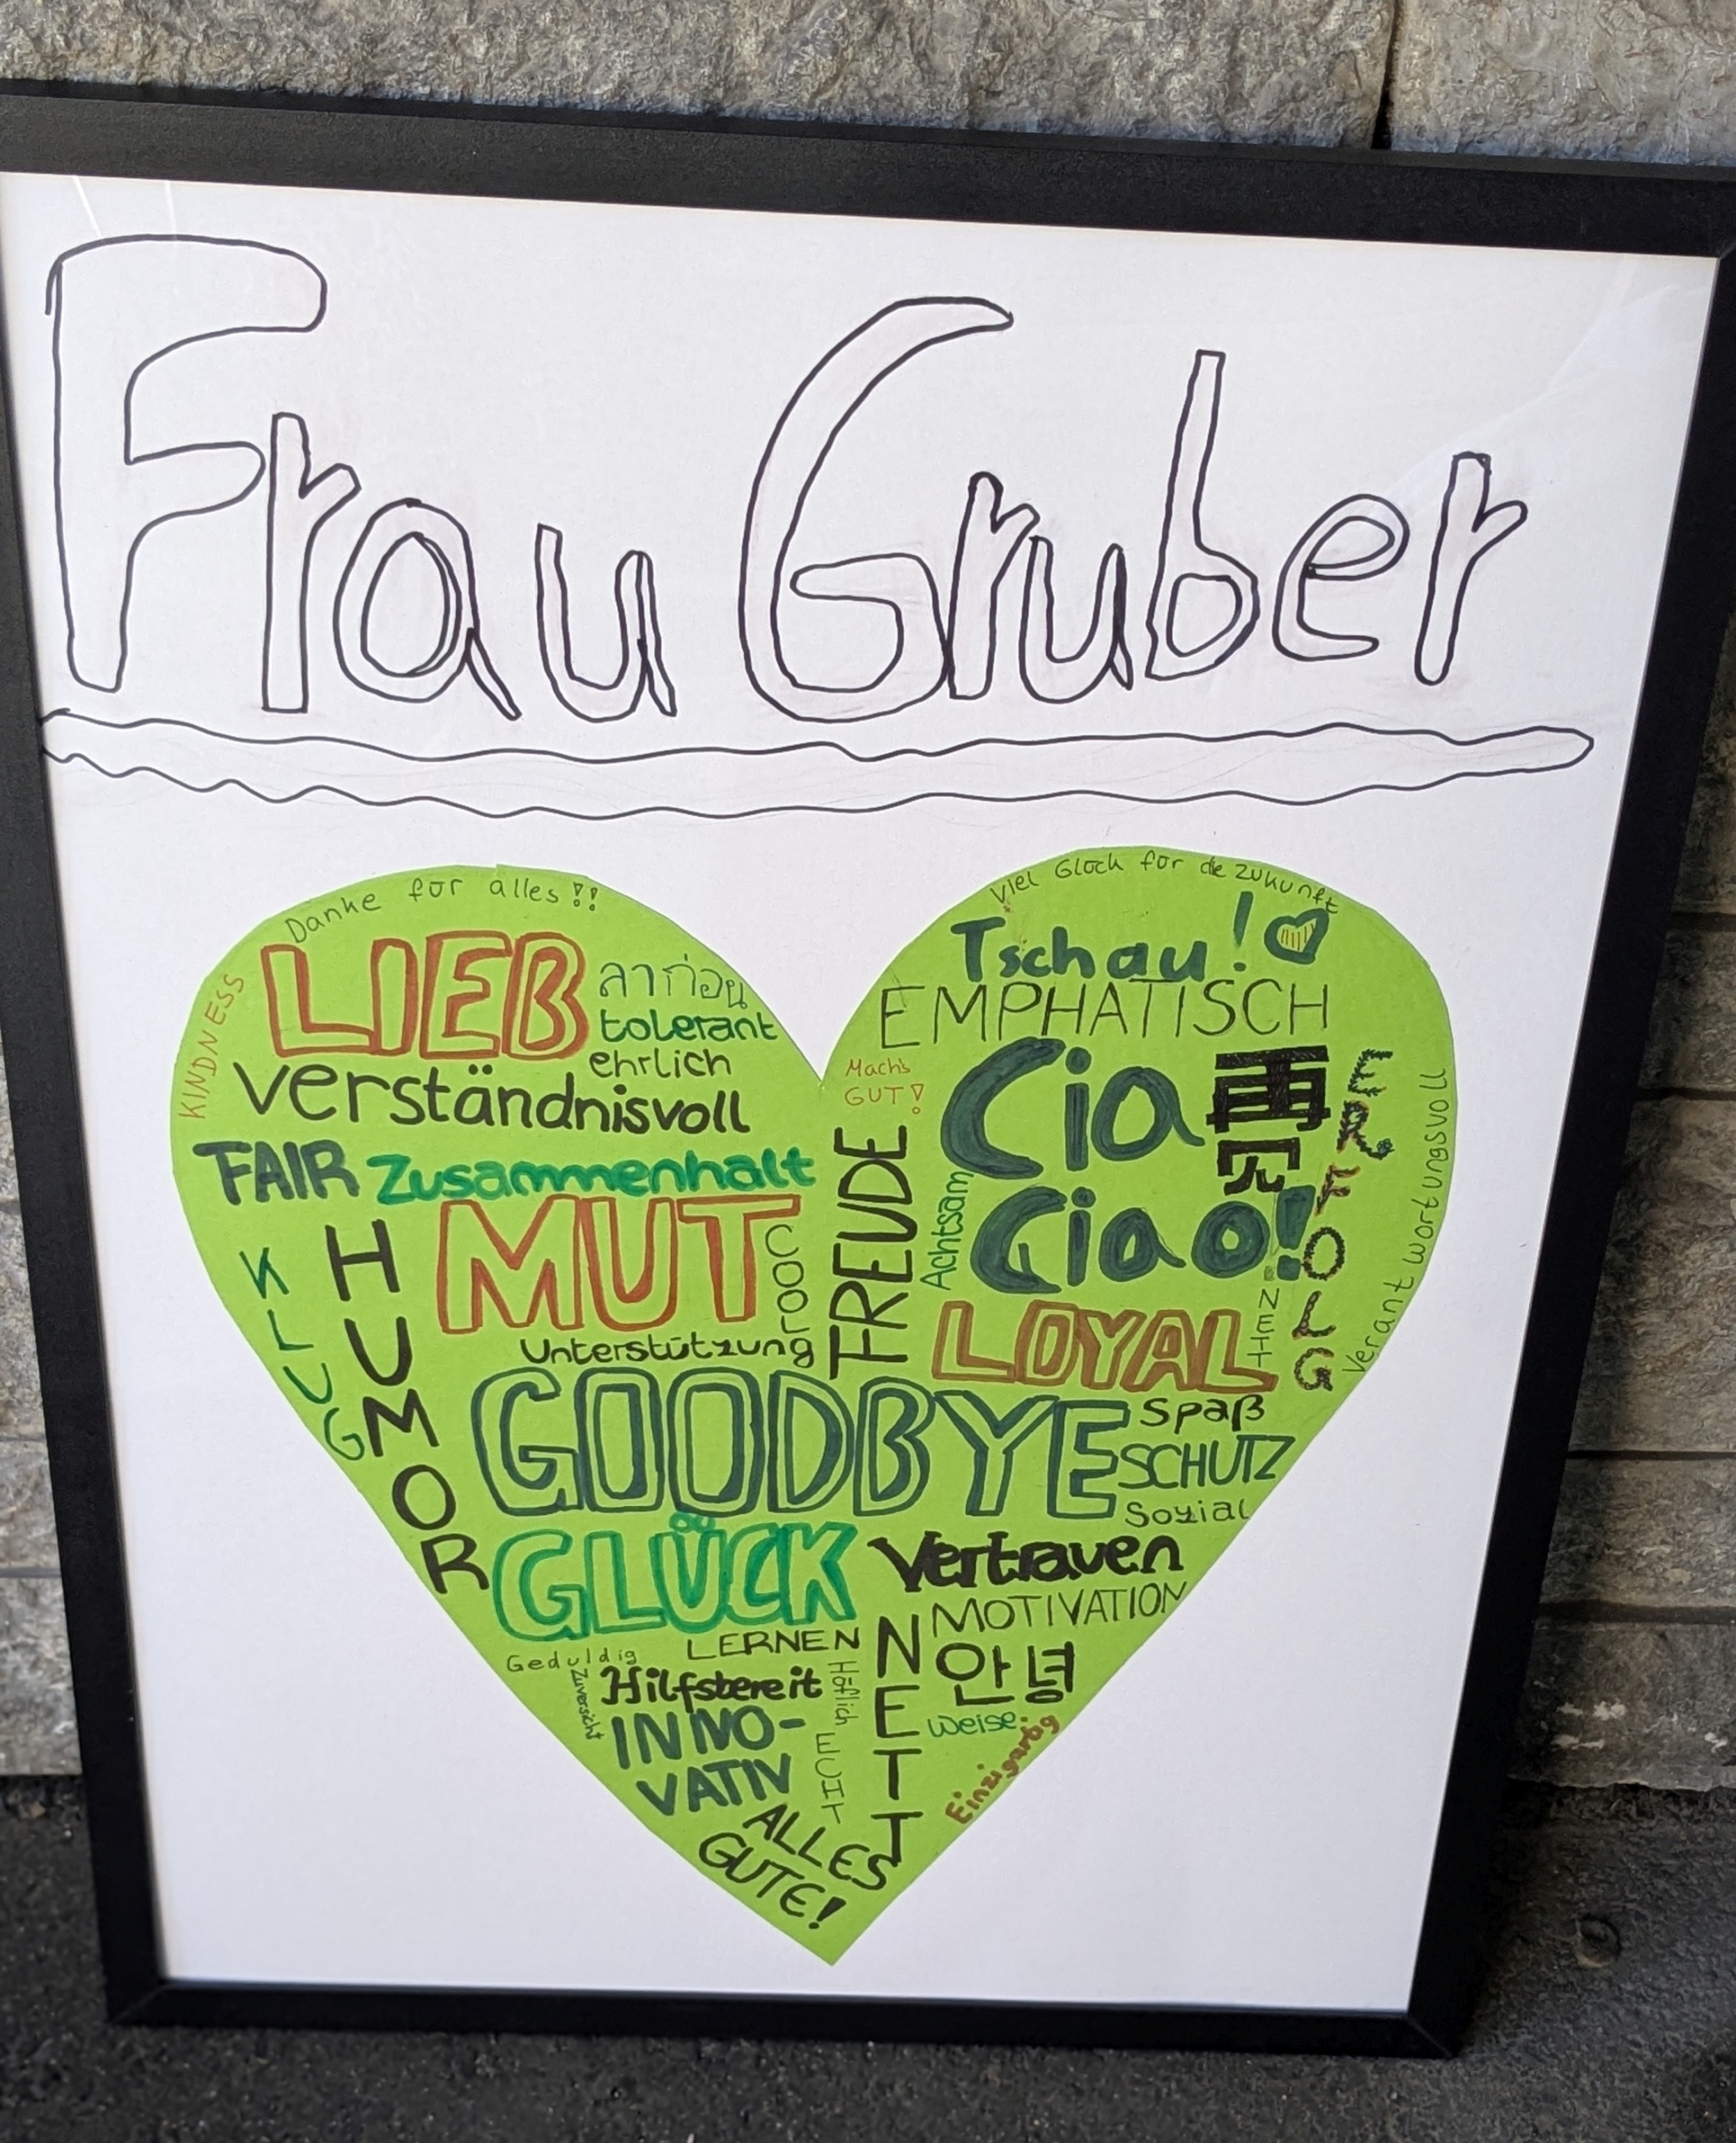 Frau Gruber
Danke für alles!!
LIEB
KINDNESS
ลาก่อน
tolerant
ehrlich
verständnisvoll
FAIR
Zusammenhalt
MUT
COOL
KLUG
HUMOR
Unterstützung
Viel Glück für die Zukunft
Tschau!
EMPHATISCH
Mach's
GUT!
Cia
Ciao!
再
见
ERFOLG
Verantwortungsvoll
FREUDE
Achtsam
LOYAL
NETT
GOODBYE
Spaß
SCHUTZ
Sozial
GLÜCK
Vertrauen
MOTIVATION
LERNEN
Geduldig
Zuversicht
Hilfsbereit
Höflich
NETT
안녕
weise
Einzigartig
INNO-
VATIV
ECHT
ALLES
GUTE!